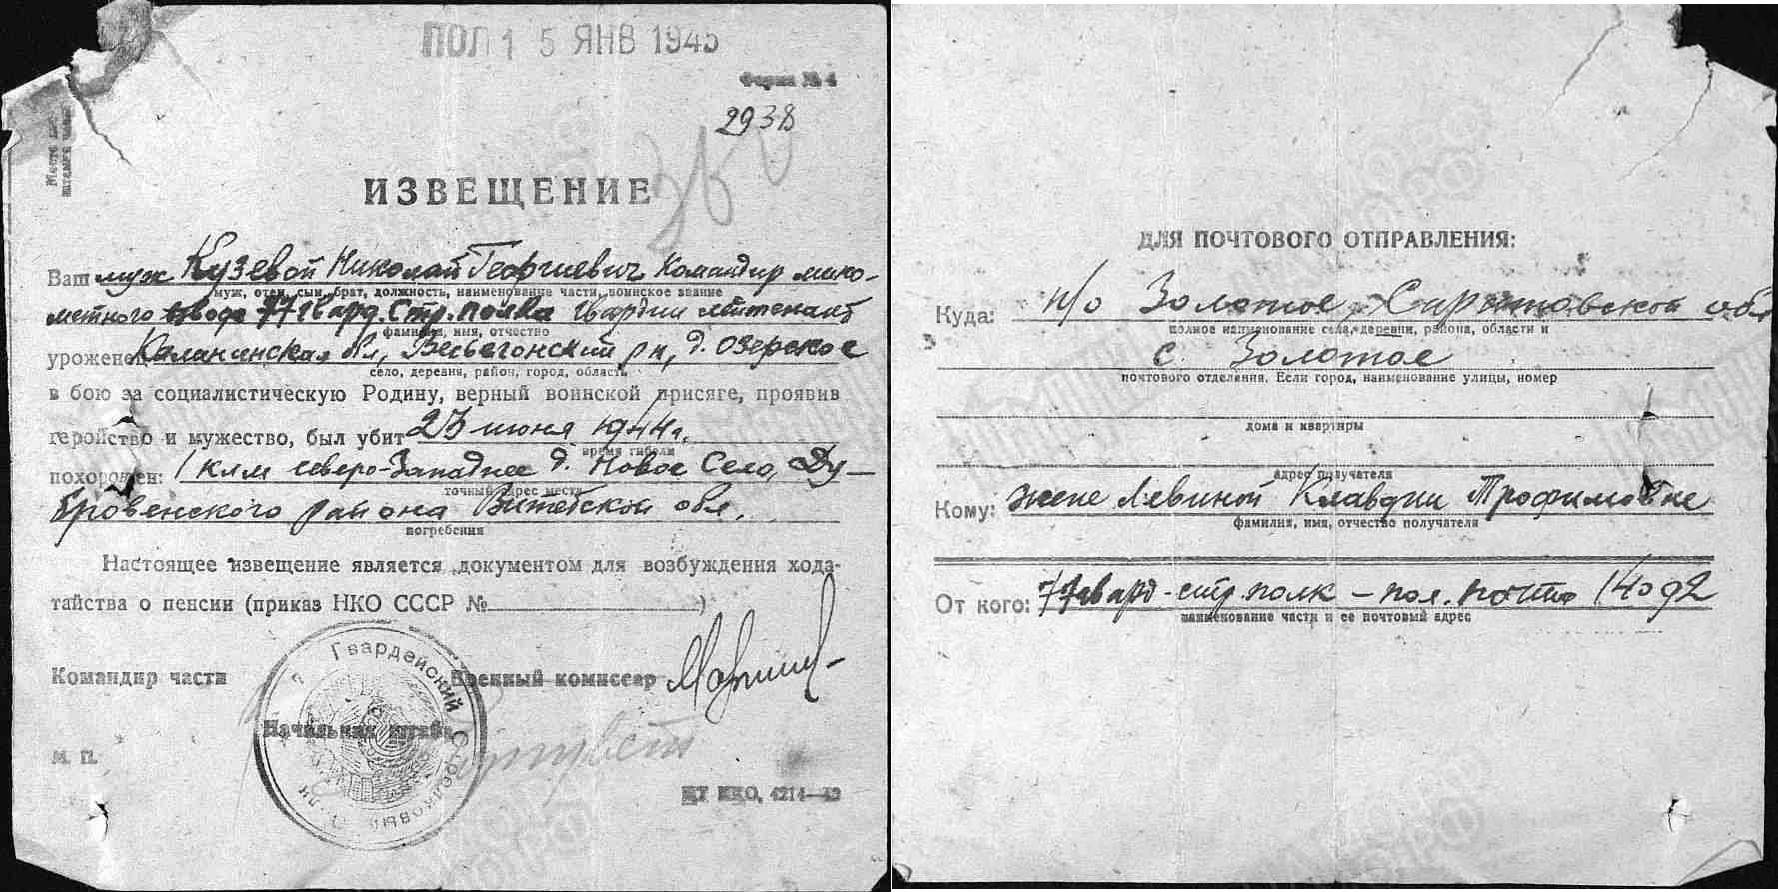 ПОЛ 15 ЯНВ 1945
Форма № 4
2938
Место для
штампа
ИЗВЕЩЕНИЕ
Ваш муж Кузевой Николай Георгиевич Командир мино-
муж, отец, сын, брат, должность, наименование части, воинское звание
метного взвода 77 гвард. Стр. полка гвардии лейтенант
фамилия, имя, отчество
уроженец Калининская обл, Весьегонский рн, д. Озерское
село, деревня, район, город, область
в бою за социалистическую Родину, верный воинской присяге, проявив
геройство и мужество, был убит 23 июня 1944 г.
время гибели
похоронен: 1 клм северо-Западнее д. Новое Село, Ду-
точный адрес места
бровенского района Витебской обл.
погребения
Настоящее извещение является документом для возбуждения хода-
тайства о пенсии (приказ НКО СССР № )
Командир части Военный комиссар
Гвардейский Стрелковый
Начальник штаба
М. П.
ЦТ НКО, 4214—42
ДЛЯ ПОЧТОВОГО ОТПРАВЛЕНИЯ:
Куда: п/о Золотое, Саратовской обл
полное наименование села, деревни, района, области и
с. Золотое
почтового отделения. Если город, наименование улицы, номер
дома и квартиры
адрес получателя
Кому: жене Левиной Клавдии Трофимовне
фамилия, имя, отчество получателя
От кого: 77 гвард-стр. полк - пол. почта 14092
наименование части и ее почтовый адрес